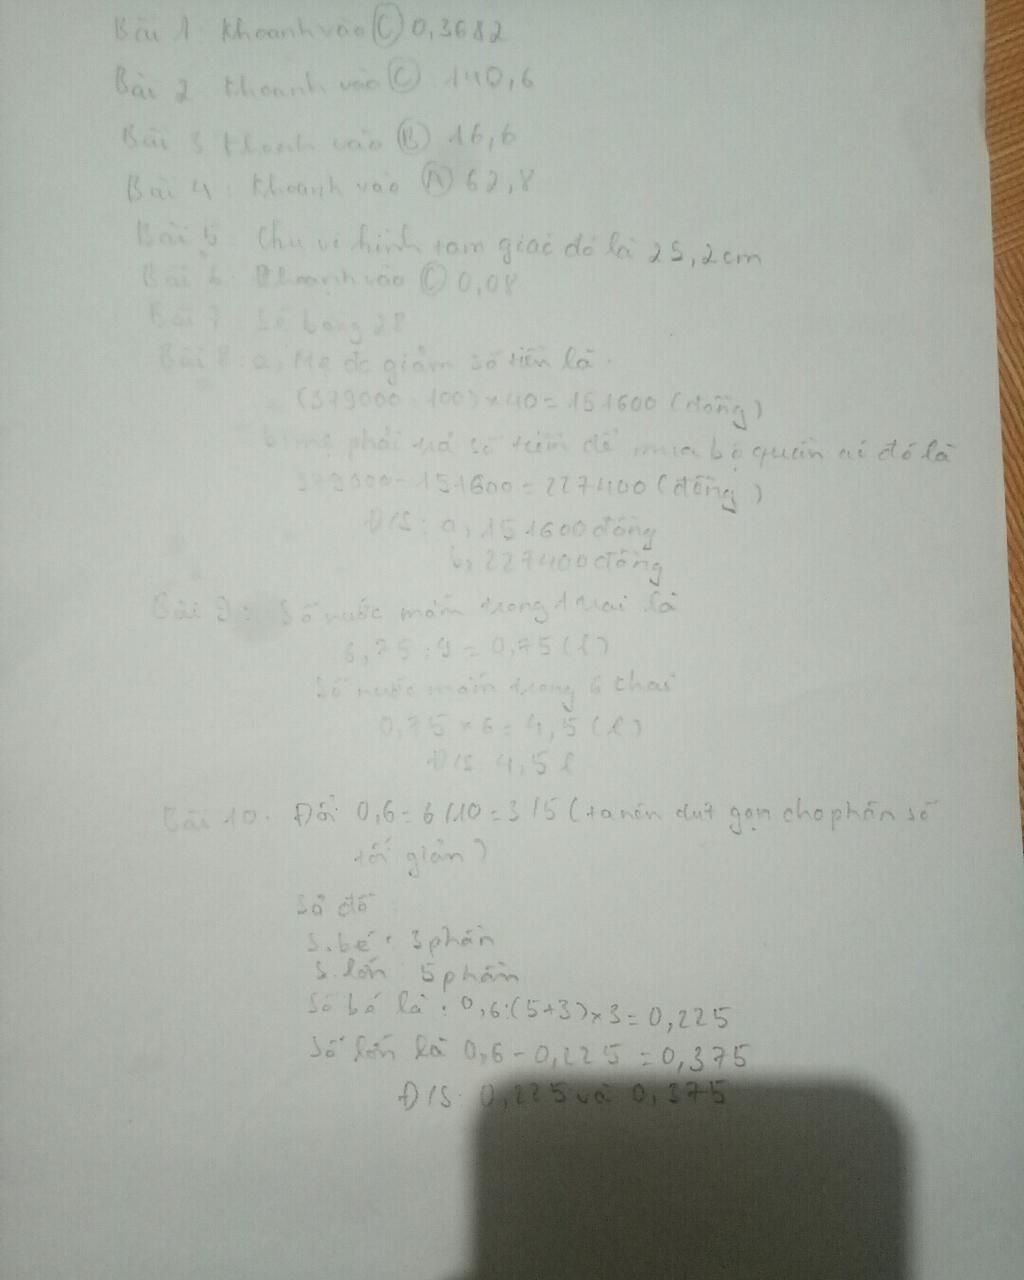 Bài 1 Khoanh vào C 0,3682
Bài 2 Khoanh vào C 140,6
Bài 3 Khoanh vào B 16,6
Bài 4: Khoanh vào A 62,8
Bài 5 Chu vi hình tam giác đó là 25,2cm
Bài 6 Khoanh vào C 0,08
Bài 7 Số bóng 28
Bài 8: a, Mẹ đc giảm số tiền là
(379000 : 100) × 40 = 151600 (đồng)
b, mẹ phải trả số tiền để mua bộ quần ái đó là
379000 - 151600 = 227400 (đồng)
Đ/S: a, 151600 đồng
b, 227400 đồng
Bài 9: Số nước mắm trong 1 là
6,75 : 9 = 0,75 (l)
Số nước mắm trong 6 chai
0,75 × 6 = 4,5 (l)
Đ/S 4,5 l
Bài 10. Đổi 0,6 = 6/10 = 3/5 (ta nên gọn cho phân số
tối giản)
Sơ đồ
S.bé: 3 phần
S.lớn 5 phần
Số bé là: 0,6:(5+3)×3 = 0,225
Số lớn là 0,6 - 0,225 = 0,375
Đ/S: 0,225 và 0,375